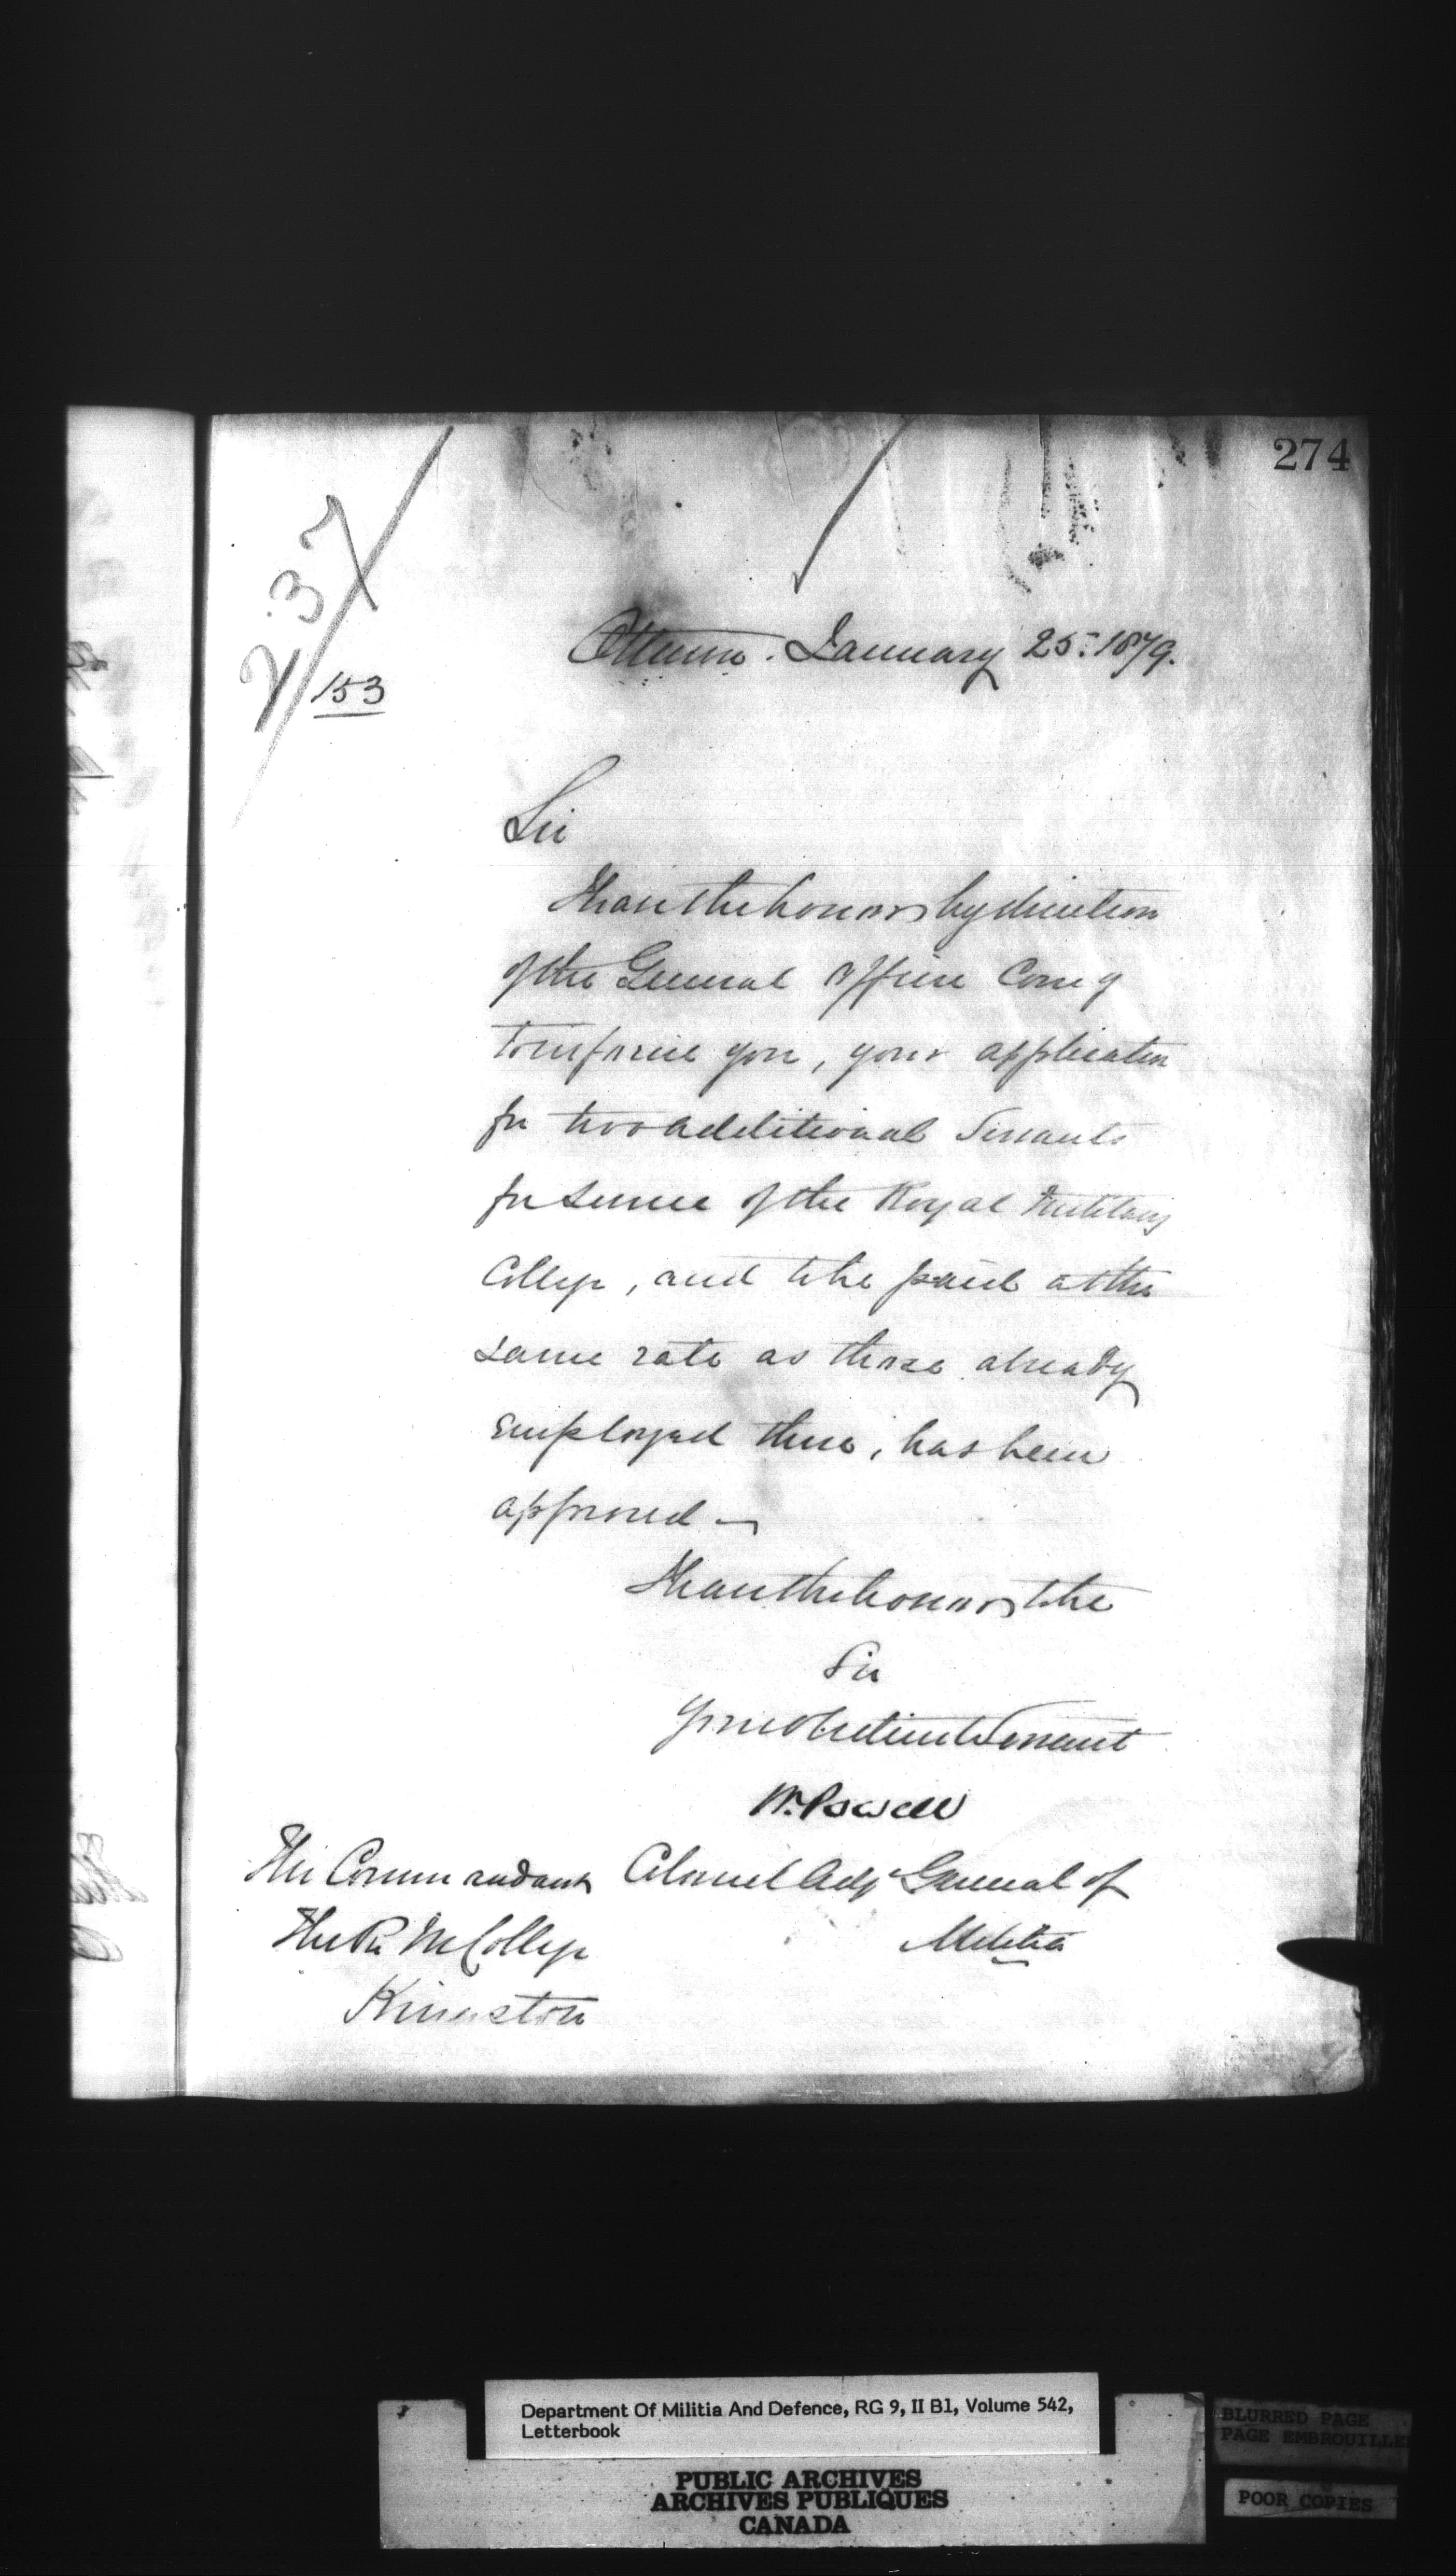 274
237
153
Ottawa. January 25: 1879.
Sir
I have the honour by direction
of the General Officer Comg
to inform you, your application
for two additional Servants
for service of the Royal Military
College, and to be paid at the
same rate as those already
employed there, has been
approved —
I have the honour to be
Sir
Your obedient Servant
W. Powell
Colonel Adjt General of
Militia
The Commandant
The R M College
Kingston
Department Of Militia And Defence, RG 9, II B1, Volume 542,
Letterbook
PUBLIC ARCHIVES
ARCHIVES PUBLIQUES
CANADA
BLURRED PAGE
PAGE EMBROUILLE
POOR COPIES